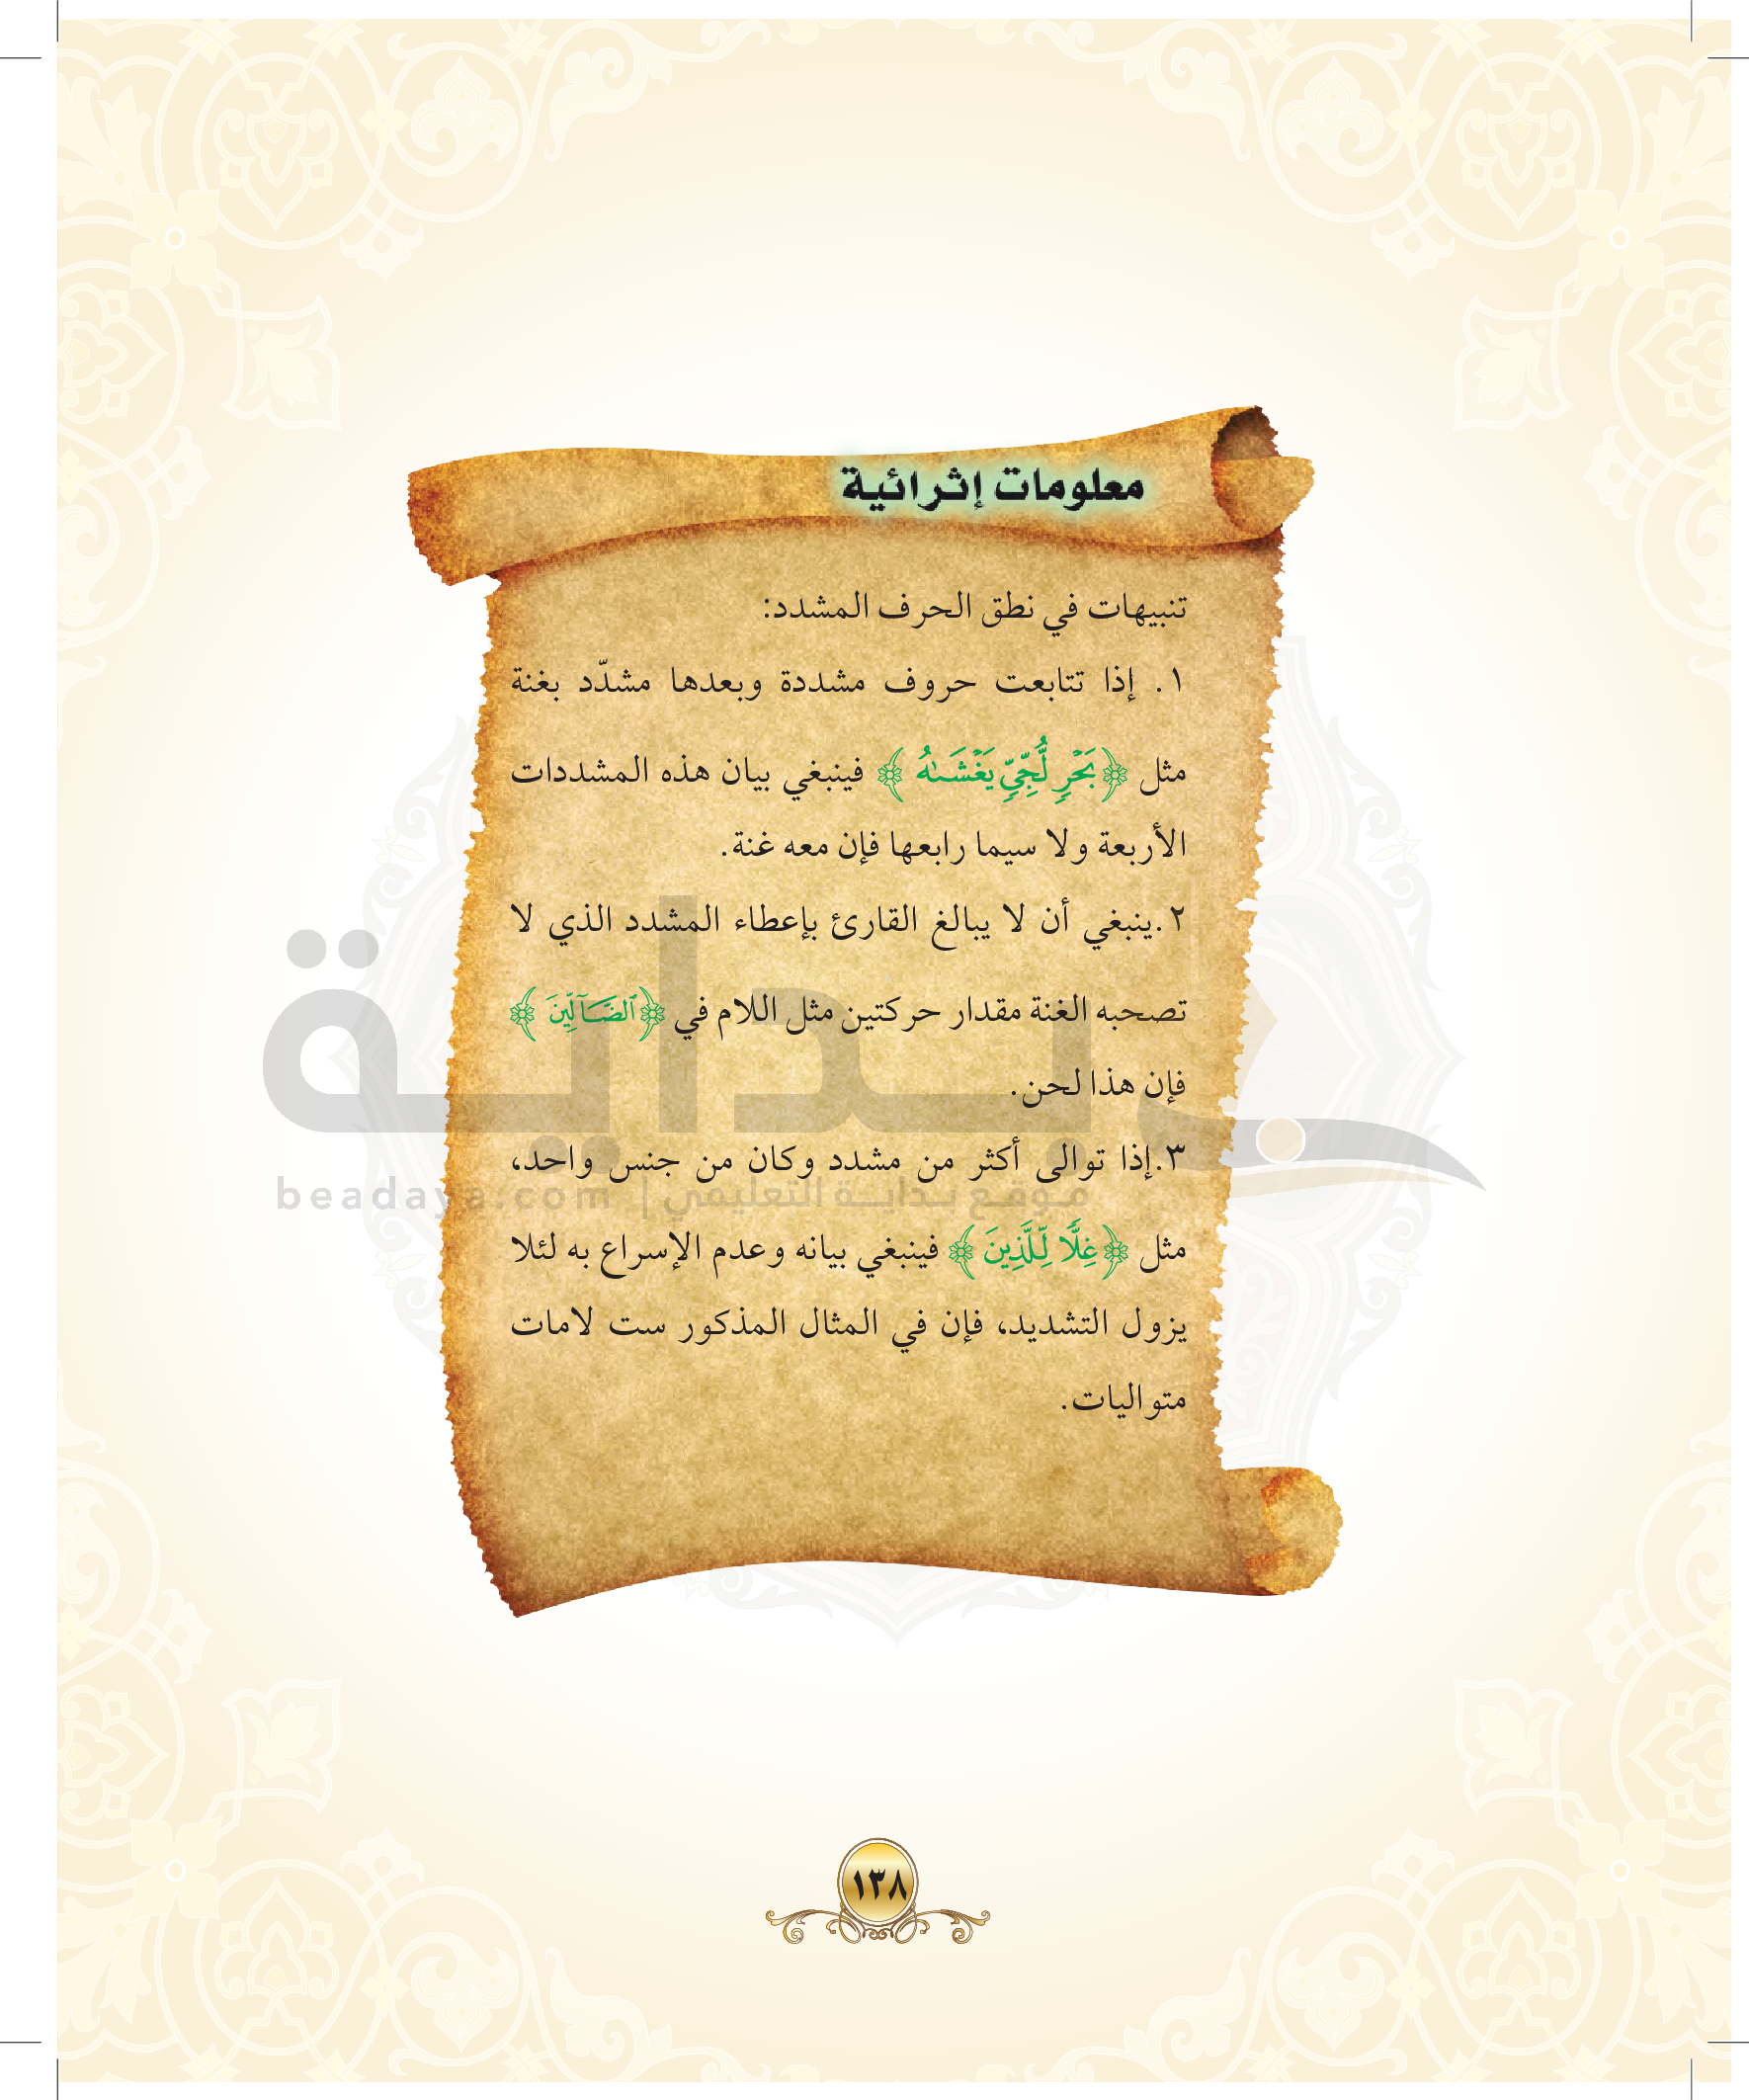 معلومات إثرائية
تنبيهات في نطق الحرف المشدد:
١. إذا تتابعت حروف مشددة وبعدها مشدّد بغنة
مثل ﴿بَحۡرٖ لُّجِّيّٖ يَغۡشَىٰهُ﴾ فينبغي بيان هذه المشددات
الأربعة ولا سيما رابعها فإن معه غنة.
٢.ينبغي أن لا يبالغ القارئ بإعطاء المشدد الذي لا
تصحبه الغنة مقدار حركتين مثل اللام في ﴿ٱلضَّآلِّينَ﴾
فإن هذا لحن.
٣.إذا توالى أكثر من مشدد وكان من جنس واحد،
مثل ﴿غِلّٗا لِّلَّذِينَ﴾ فينبغي بيانه وعدم الإسراع به لئلا
يزول التشديد، فإن في المثال المذكور ست لامات
متواليات.
بداية
موقع بداية التعليمي | beadaya.com
١٣٨